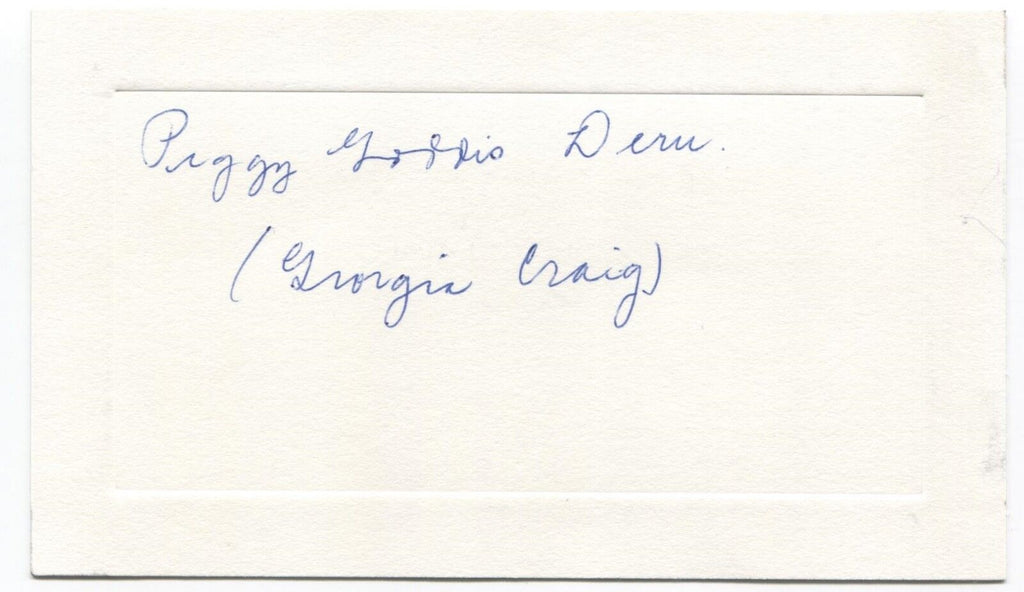 Peggy Gaddis Dern.
(Georgia Craig)